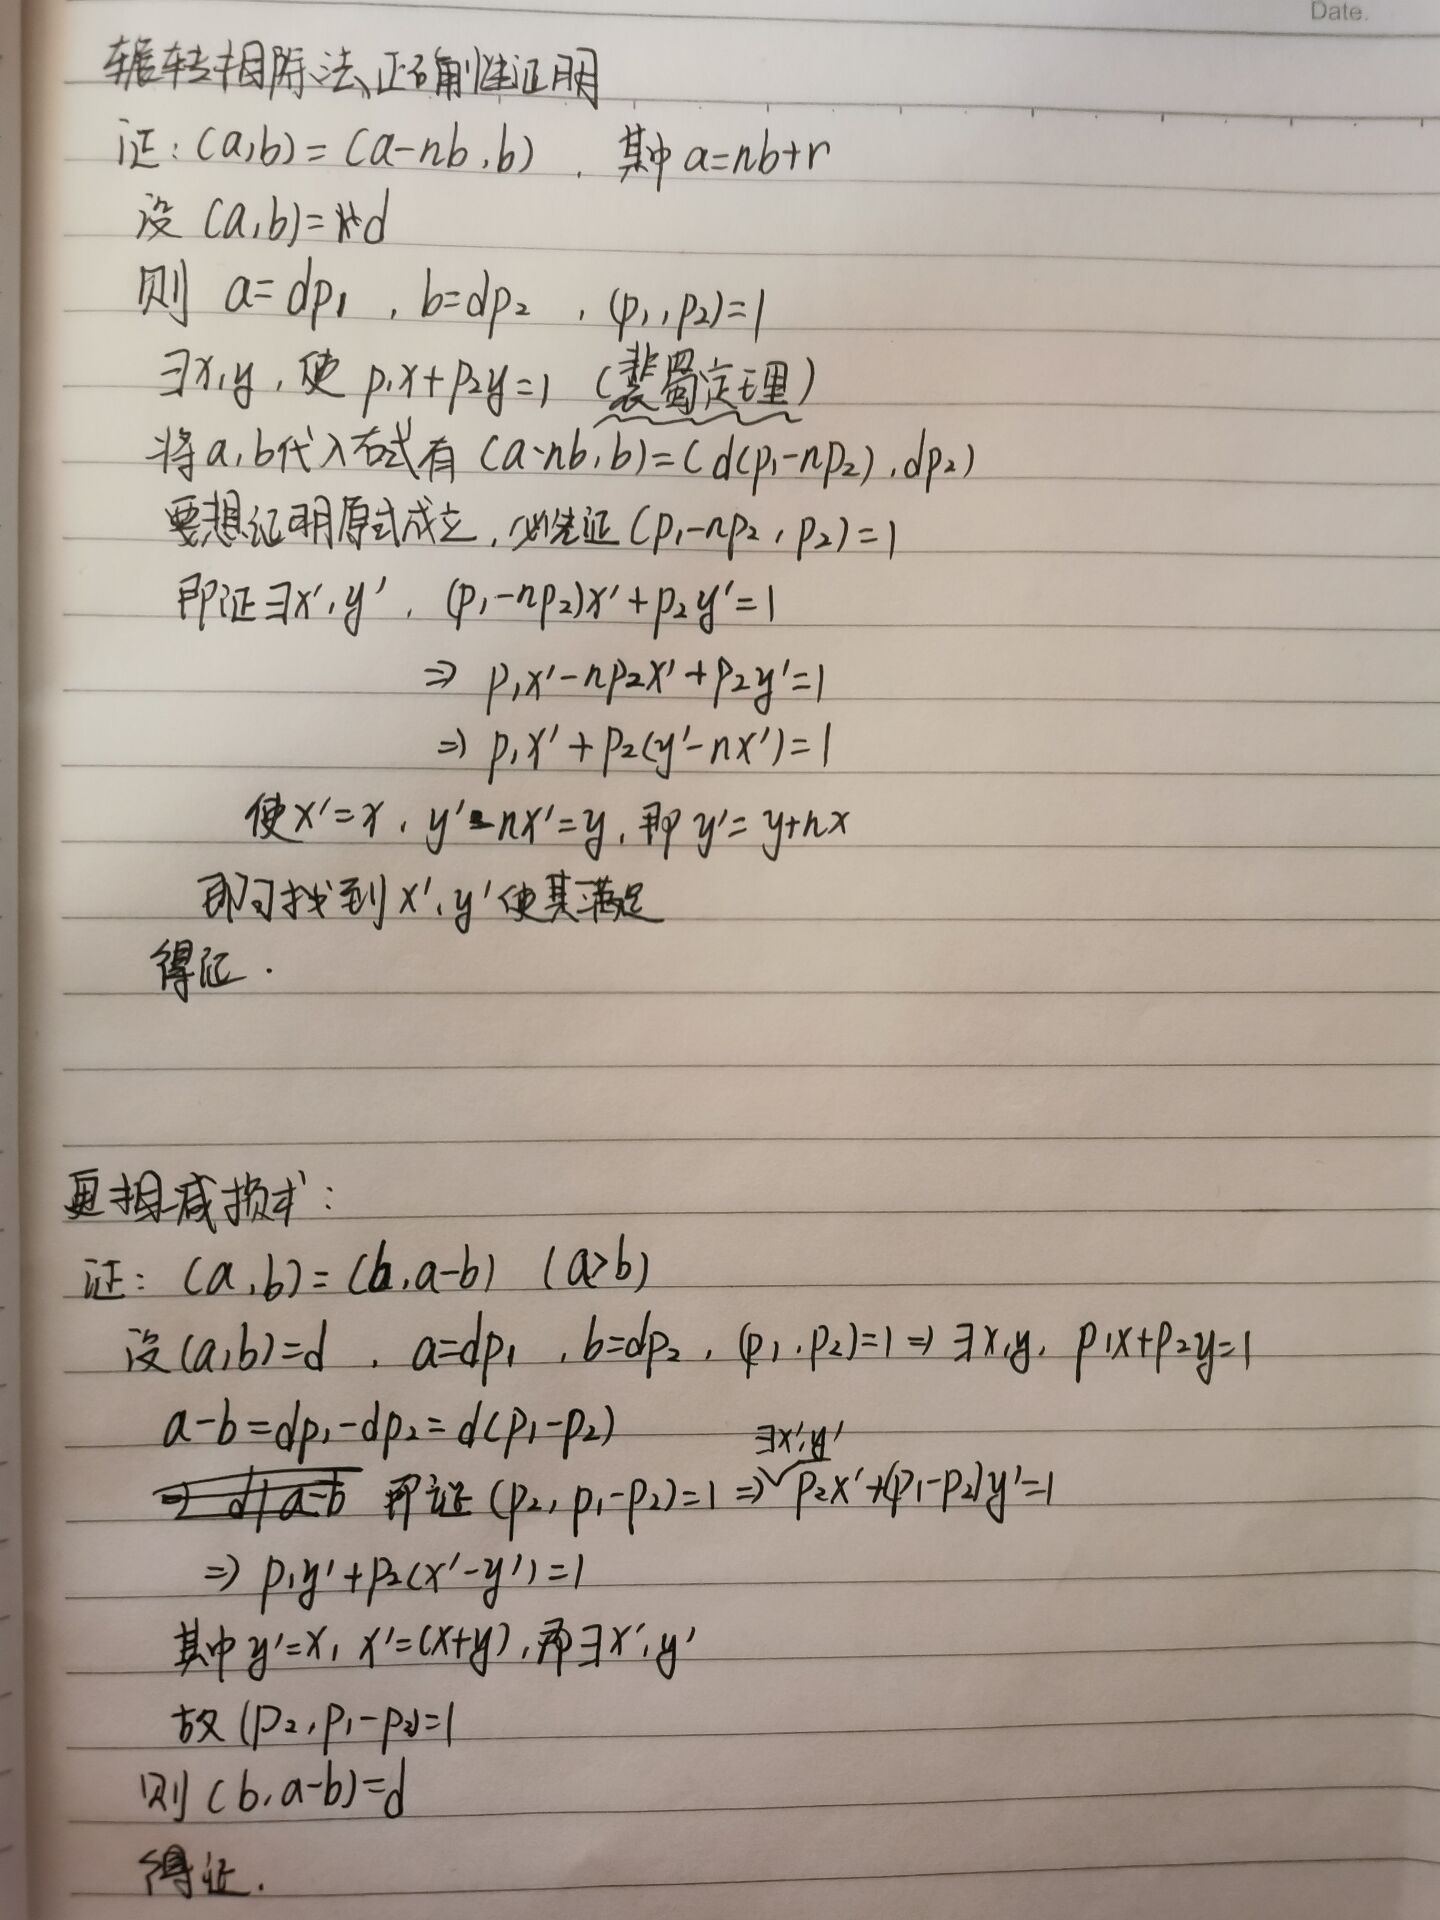 Date.
辗转相除法正确性证明
证：(a,b)=(a-nb,b)，其中a=nb+r
设 (a,b)=d
则 a=dp₁，b=dp₂，(p₁,p₂)=1
∃x,y，使 p₁x+p₂y=1 (裴蜀定理)
将a,b代入右式有 (a-nb,b)=(d(p₁-np₂),dp₂)
要想证明原式成立，必先证 (p₁-np₂,p₂)=1
即证∃x',y'，(p₁-np₂)x'+p₂y'=1
⇒ p₁x'-np₂x'+p₂y'=1
⇒ p₁x'+p₂(y'-nx')=1
使x'=x，y'-nx'=y，即 y'=y+nx
即可找到x',y'使其满足
得证.
更相减损术：
证：(a,b)=(b,a-b) (a>b)
设(a,b)=d，a=dp₁，b=dp₂，(p₁,p₂)=1⇒∃x,y，p₁x+p₂y=1
a-b=dp₁-dp₂=d(p₁-p₂)
⇒ d|a-b 即证 (p₂,p₁-p₂)=1 ⇒ ∃x',y' p₂x'+(p₁-p₂)y'=1
⇒ p₁y'+p₂(x'-y')=1
其中y'=x，x'=(x+y)，即∃x',y'
故 (p₂,p₁-p₂)=1
则 (b,a-b)=d
得证.